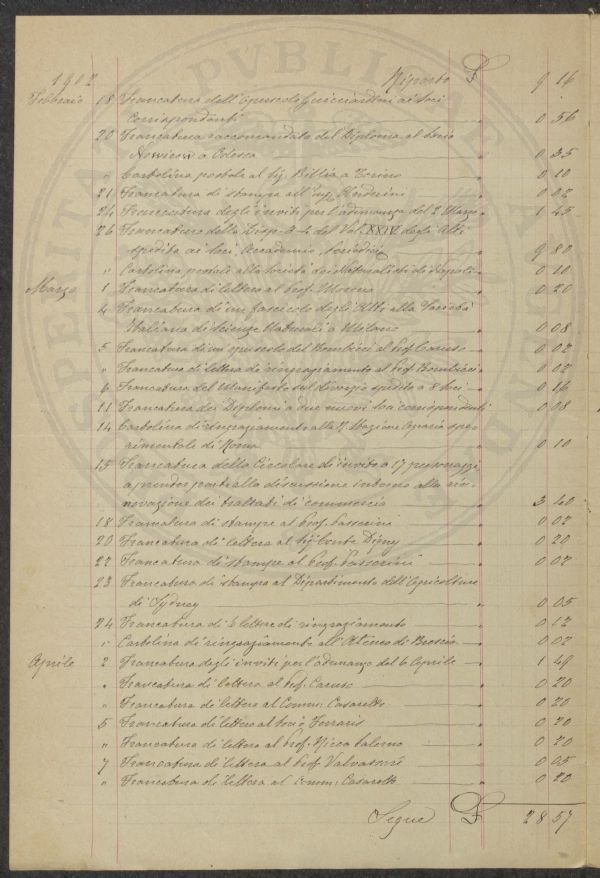 PROSPERITATI PVBLICAE AVGENDAE
1902 Riporto £ 9 16
Febbraio 18 Francatura dell'opuscolo Guicciardini ai Soci
Corrispondenti " 0 56
20 Francatura raccomandata del Diploma al Socio
Novicow a Odessa " 0 35
" Cartolina postale al Sig. Billia a Torino " 0 10
21 Francatura di stampe all'Ing. " 0 02
24 Francatura degli inviti per l'adunanza del 2 Marzo " 1 45
26 Francatura della Disp. 3-4 del Vol. XXIV degli Atti
spedita ai Soci, Accademie, Periodici " 9 80
" Cartolina postale alla Società dei Naturalisti di Napoli " 0 10
Marzo 1 Francatura di lettera al Prof. " 0 20
4 Francatura di un fascicolo degli Atti alla Società
Italiana di Scienze Naturali a Milano " 0 08
5 Francatura di un opuscolo del Bombicci al Prof. Caruso " 0 02
" Francatura di lettera di ringraziamento al Prof. Bombicci " 0 02
6 Francatura del Manifesto sul divorzio spedito a 8 Soci " 0 16
11 Francatura dei Diplomi a due nuovi Soci corrispondenti 0 08
14 Cartolina di ringraziamento alla R. Stazione Agraria spe-
rimentale di Roma " 0 10
15 Francatura della Circolare di invito a 17 personaggi
a prender parte alla discussione intorno alla rin-
novazione dei trattati di commercio " 3 40
18 Francatura di stampe al Prof. Passerini " 0 02
20 Francatura di lettera al Sig. Conte Digny " 0 20
22 Francatura di stampe al Prof. Passerini " 0 02
23 Francatura di stampa al Dipartimento dell'Agricoltura
di Sydney " 0 05
24 Francatura di 6 lettere di ringraziamento " 0 12
" Cartolina di ringraziamento all'Ateneo di Brescia " 0 02
Aprile 2 Francatura degli inviti per l'adunanza del 6 Aprile " 1 49
" Francatura di lettera al Prof. Caruso " 0 20
" Francatura di lettera al Comm. Casaretto " 0 20
5 Francatura di lettera al Socio Ferraris " 0 20
" Francatura di lettera al Prof. Ricca Salerno " 0 20
7 Francatura di lettera al Prof. Valvassori " 0 05
" Francatura di lettera al Comm. Casaretto " 0 20
Segue £ 28 57